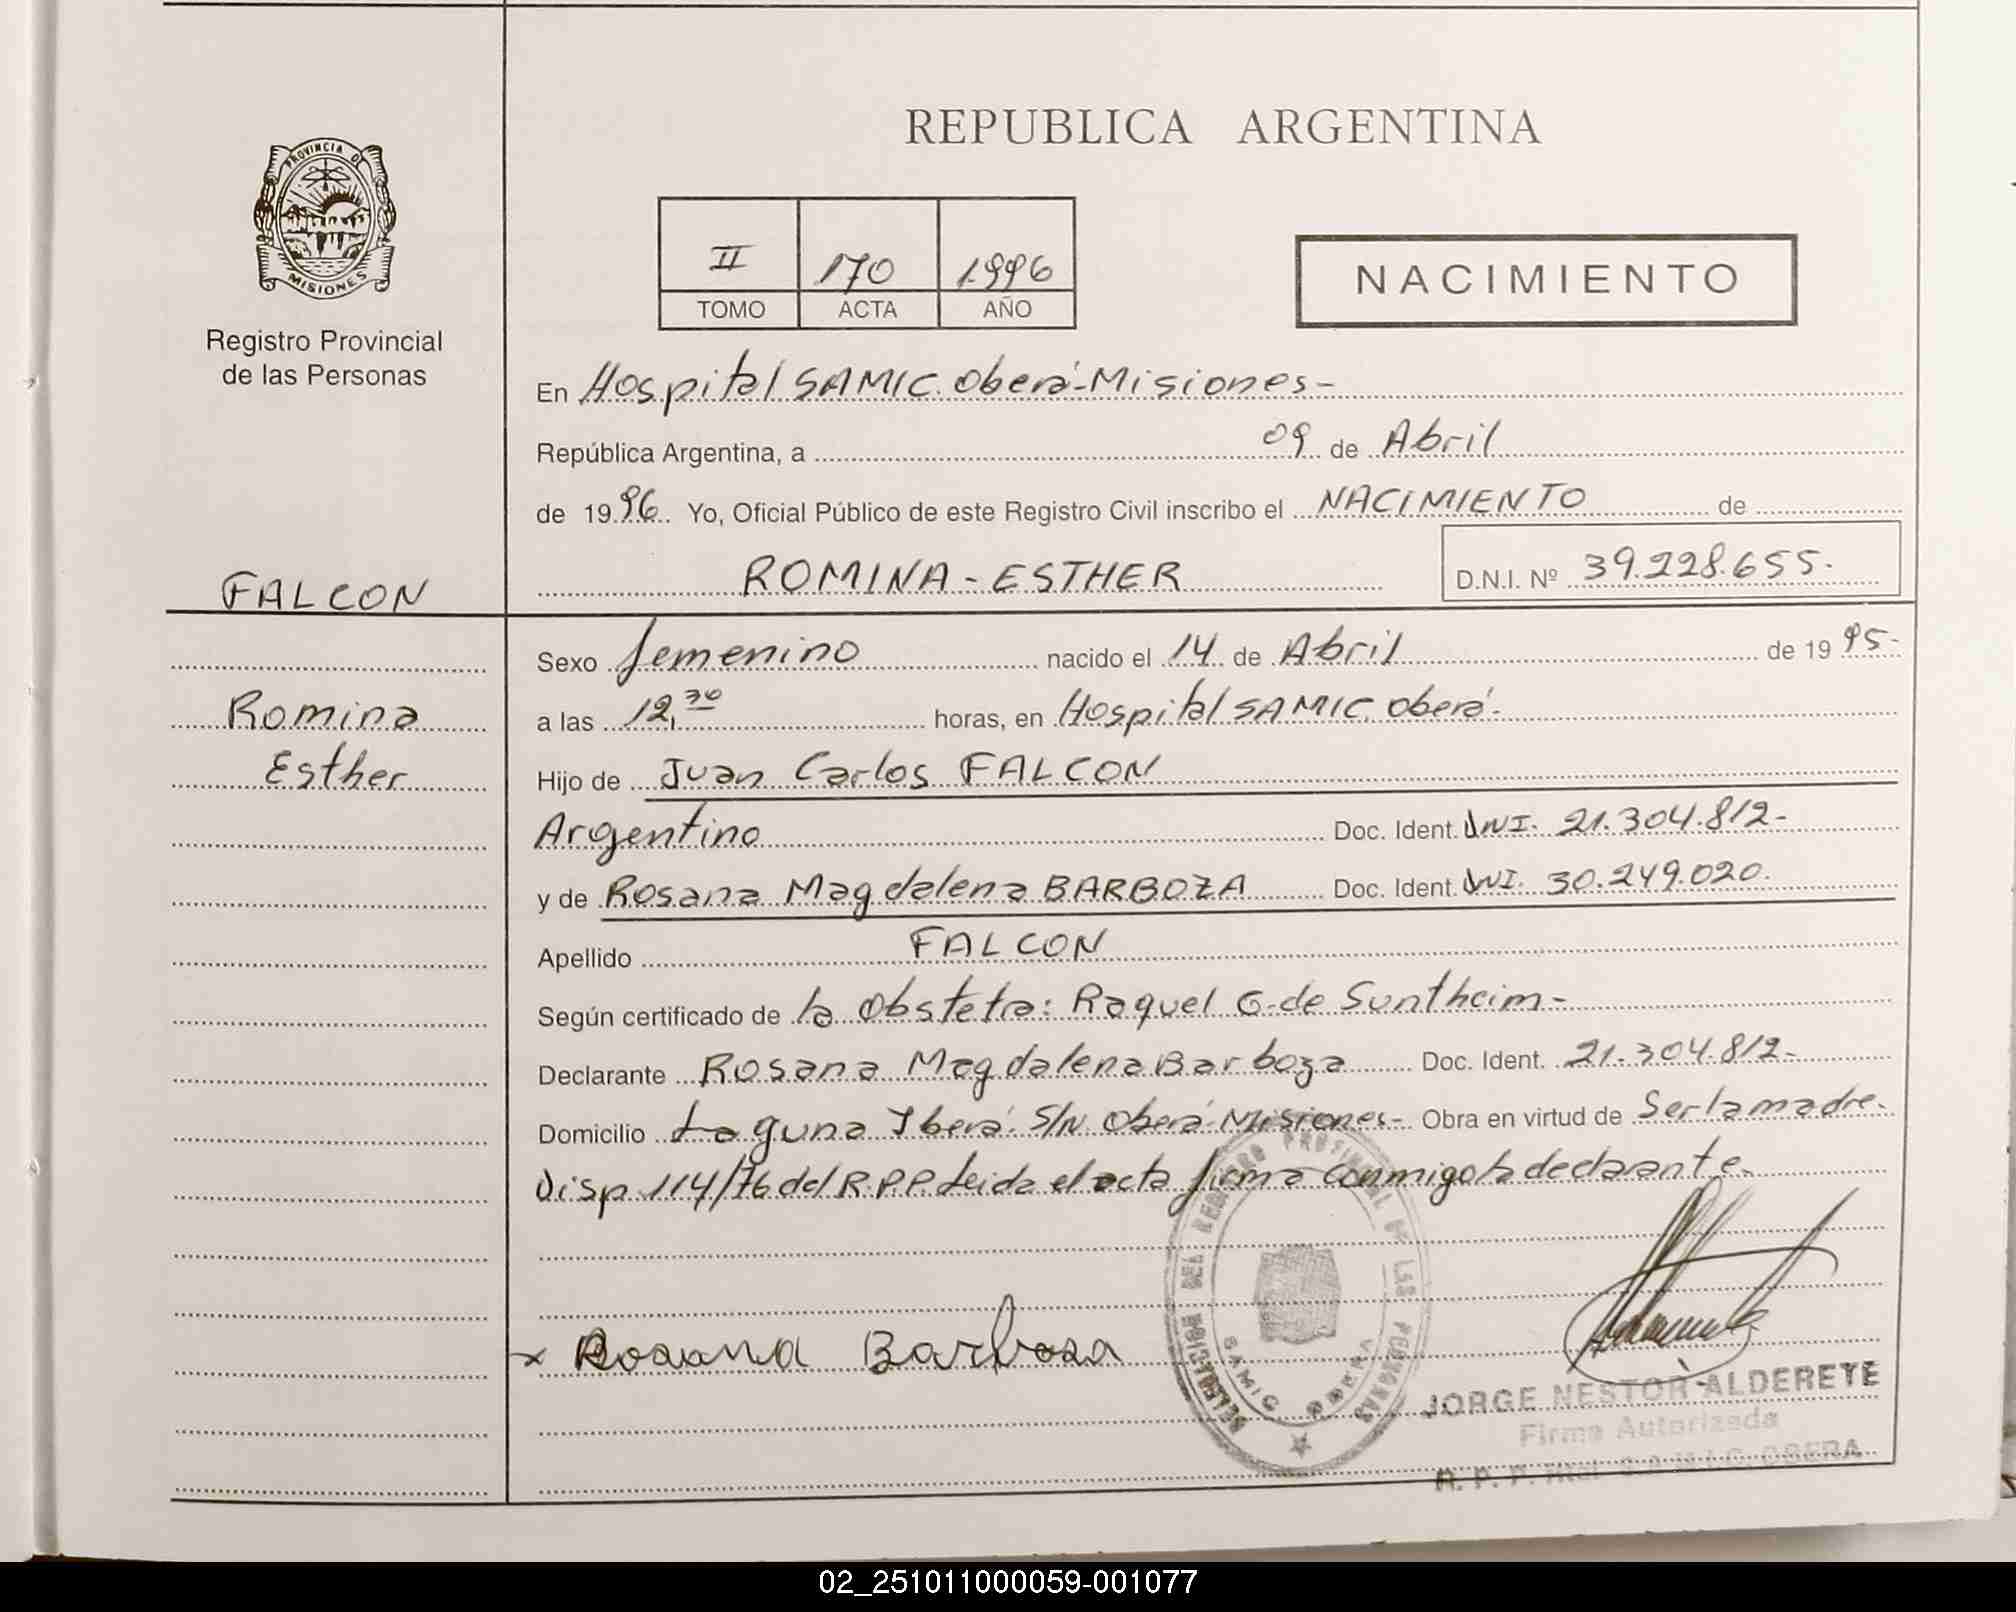 PROVINCIA DE
MISIONES
Registro Provincial
de las Personas
REPUBLICA ARGENTINA
II 170 1996
TOMO ACTA AÑO
NACIMIENTO
En Hospital SAMIC. Oberá-Misiones-
República Argentina, a 09 de Abril
de 1996. Yo, Oficial Público de este Registro Civil inscribo el NACIMIENTO de
ROMINA-ESTHER D.N.I. Nº 39.228.655.
FALCON
Romina
Esther
Sexo femenino nacido el 14 de Abril de 1995-
a las 12,30 horas, en Hospital SAMIC. Oberá-
Hijo de Juan Carlos FALCON
Argentino Doc. Ident. DNI. 21.304.812-
y de Rosana Magdalena BARBOZA Doc. Ident. DNI. 30.249.020.
Apellido FALCON
Según certificado de la Obstetra: Raquel G. de Suntheim-
Declarante Rosana Magdalena Barboza Doc. Ident. 21.304.812-
Domicilio Laguna Iberá. S/N Oberá-Misiones- Obra en virtud de Ser la madre.
Disp. 114/76 del R.P.P. Leida el acta firma conmigo la declarante.
x Rosana Barboza
DELEGACION DEL REGISTRO PROVINCIAL DE LAS PERSONAS
SAMIC OBERA
JORGE NESTOR ALDERETE
Firma Autorizada
R. P. P. Htal. S.A.M.I.C. OBERA
02_251011000059-001077